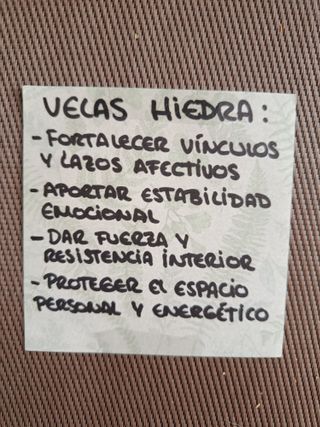 VELAS HIEDRA:
- FORTALECER VÍNCULOS
Y LAZOS AFECTIVOS
- APORTAR ESTABILIDAD
EMOCIONAL
- DAR FUERZA Y
RESISTENCIA INTERIOR
- PROTEGER EL ESPACIO
PERSONAL Y ENERGÉTICO